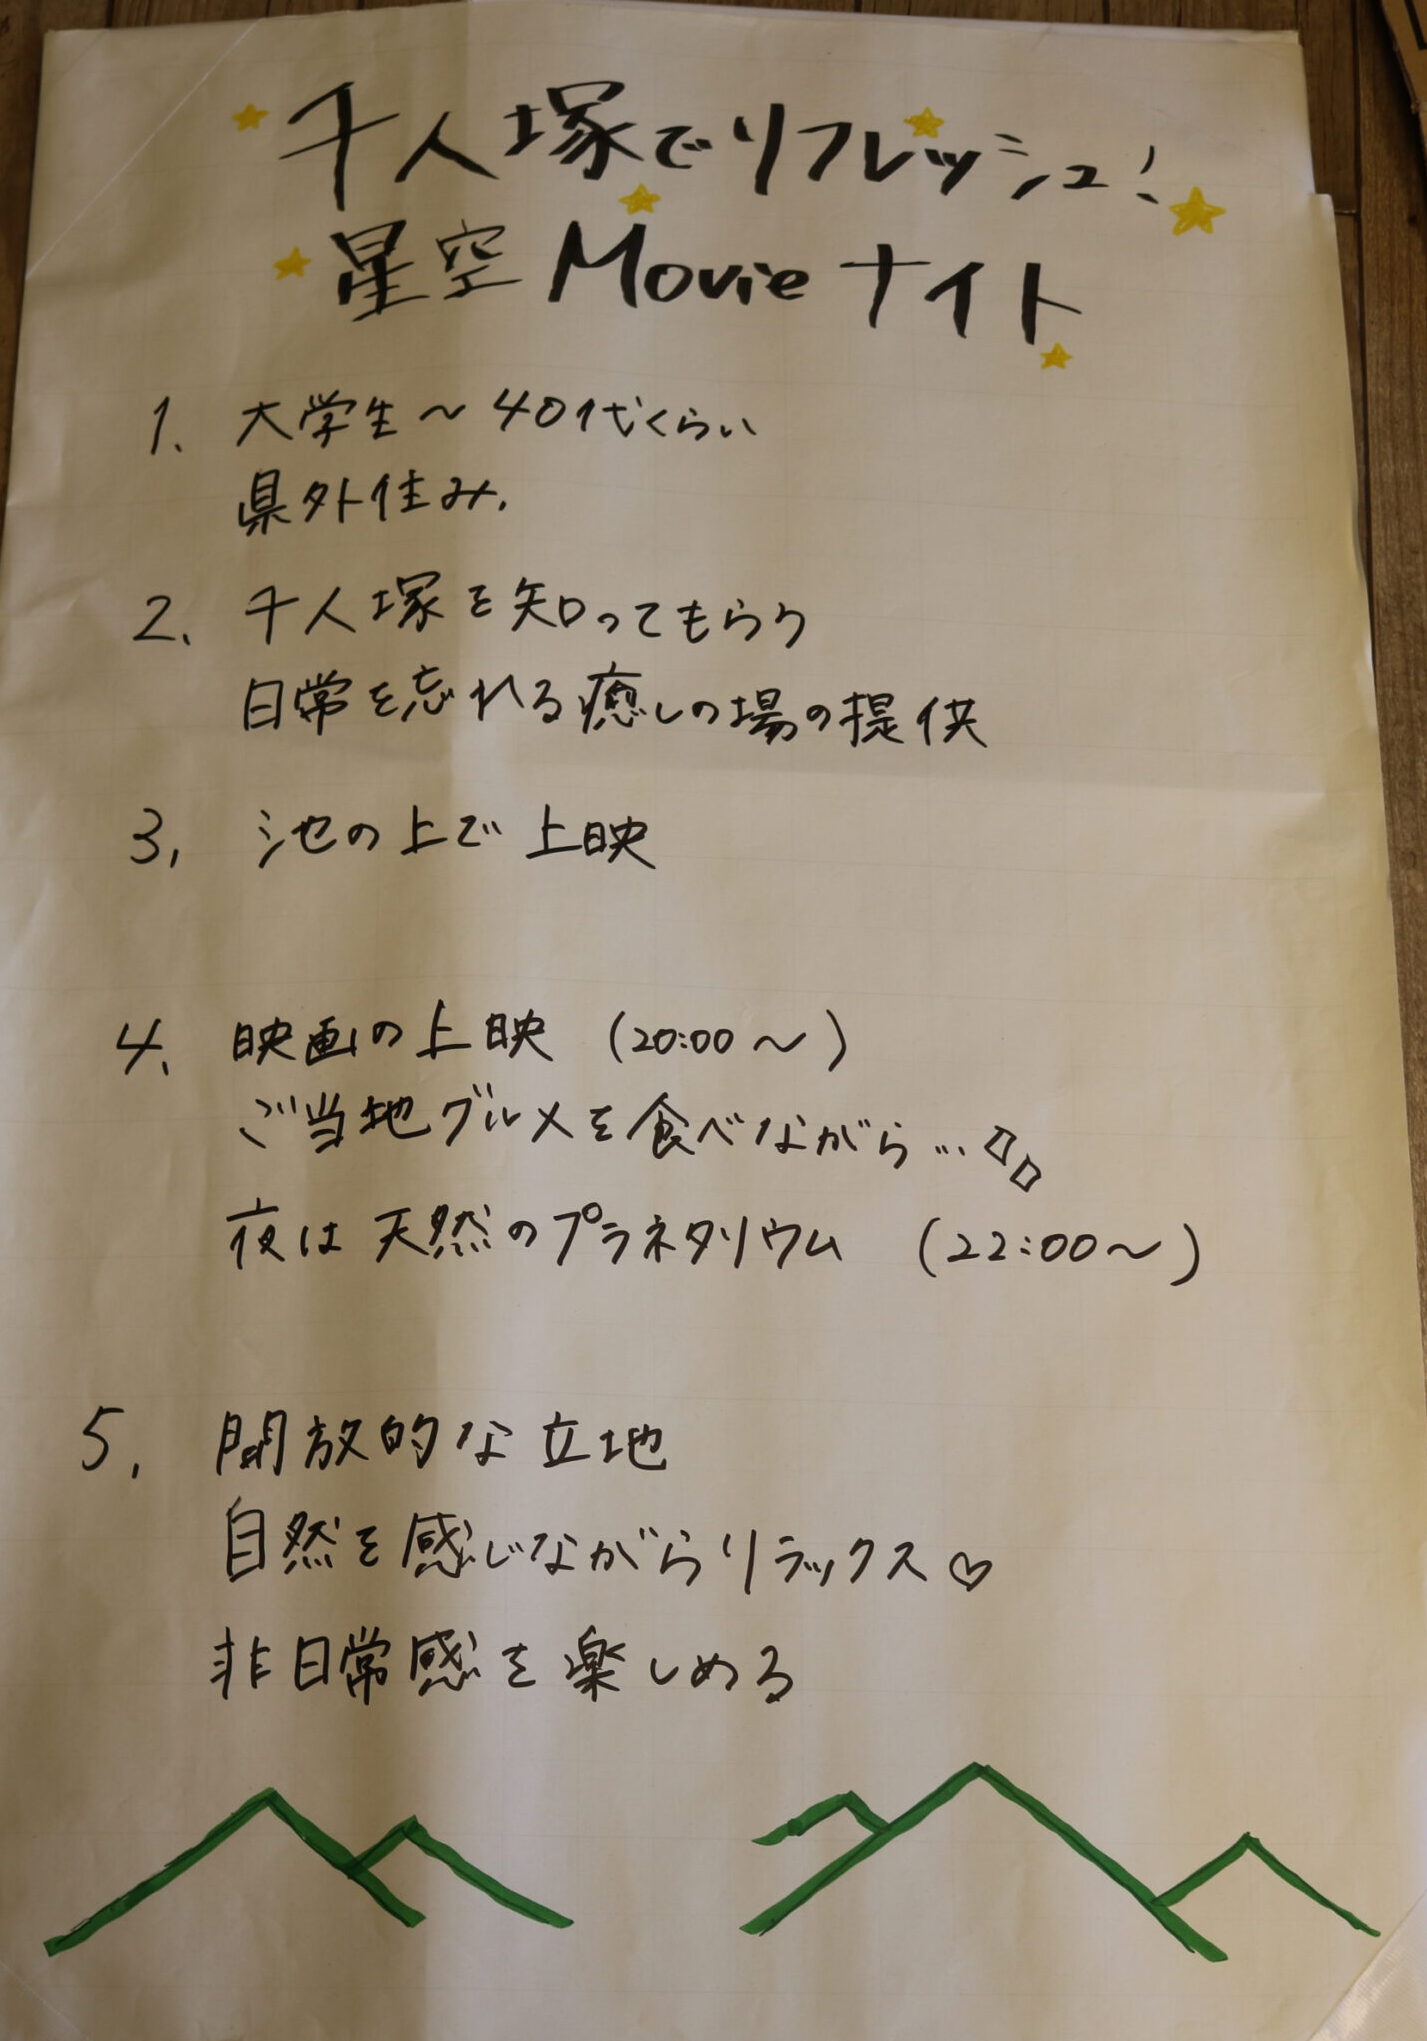 千人塚でリフレッシュ!
星空Movieナイト
1. 大学生～40代くらい
県外住み.
2. 千人塚を知ってもらう
日常を忘れる癒しの場の提供
3, 池の上で上映
4. 映画の上映 (20:00～)
ご当地グルメを食べながら…
夜は天然のプラネタリウム (22:00～)
5, 開放的な立地
自然を感じながらリラックス♡
非日常感を楽しめる